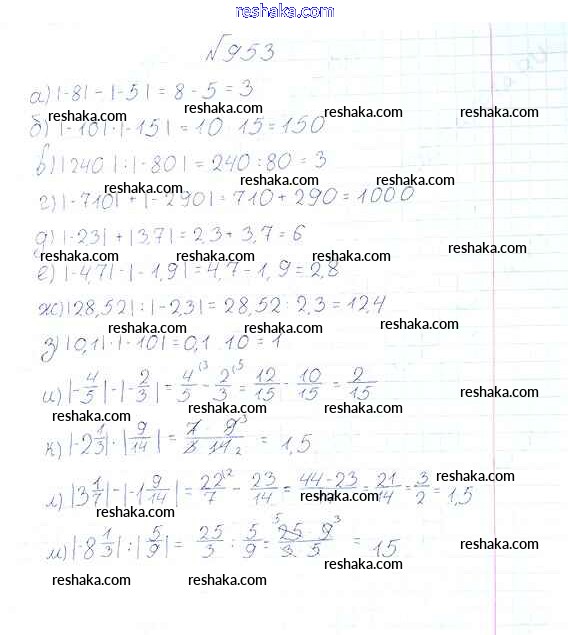 reshaka.com
№953
а) |-8| - |-5| = 8 - 5 = 3
reshaka.com reshaka.com reshaka.com
б) |-10| · |-15| = 10 · 15 = 150
reshaka.com reshaka.com reshaka.com
в) |240| : |-80| = 240 : 80 = 3
reshaka.com reshaka.com
г) |-710| + |-290| = 710 + 290 = 1000
д) |-2,3| + |3,7| = 2,3 + 3,7 = 6
reshaka.com reshaka.com reshaka.com
е) |-4,7| - |-1,9| = 4,7 - 1,9 = 2,8
ж) |28,52| : |-2,3| = 28,52 : 2,3 = 12,4
reshaka.com reshaka.com
з) |0,1| · |-10| = 0,1 · 10 = 1
reshaka.com reshaka.com
и) |-4/5| - |-2/3| = 4/5 - 2/3 = 12/15 - 10/15 = 2/15
reshaka.com reshaka.com reshaka.com
к) |-2 1/3| · |9/14| = 7 · 9 3 / 3 · 14 2 = 1,5
reshaka.com
л) |3 1/7| - |-1 9/14| = 22/7 - 23/14 = 44-23/14 = 21/14 = 3/2 = 1,5
reshaka.com reshaka.com reshaka.com
м) |-8 1/3| : |5/9| = 25/3 : 5/9 = 5 25 · 9 3 / 3 · 5 = 15
reshaka.com reshaka.com
reshaka.com reshaka.com reshaka.com